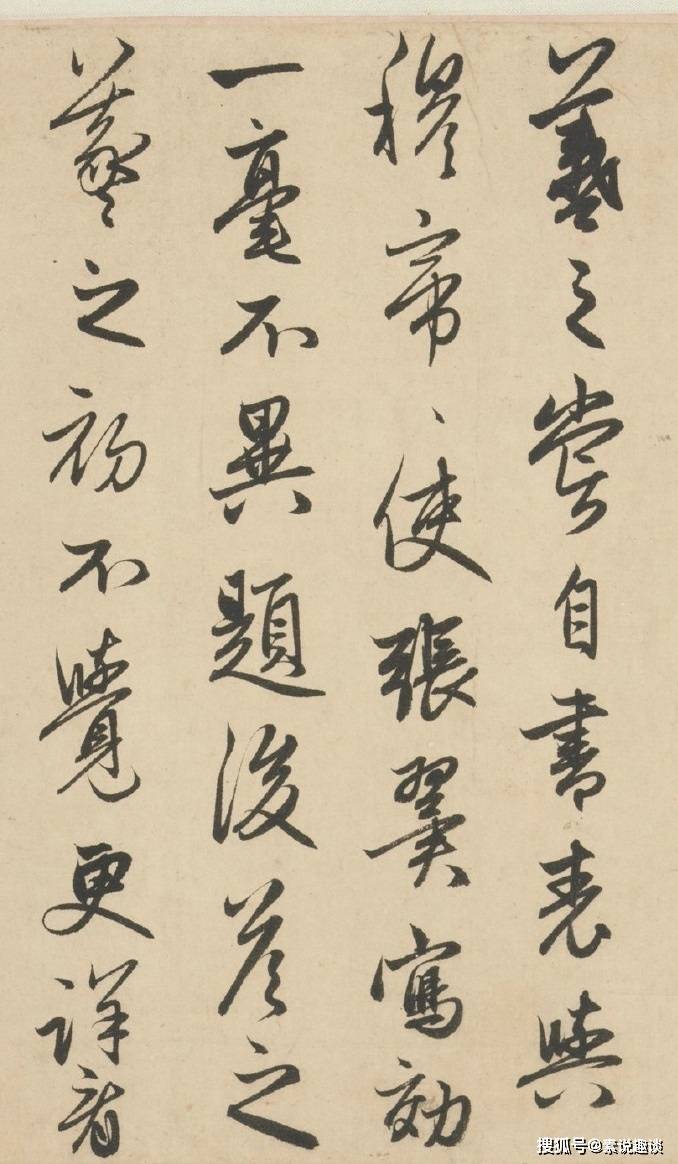 羲之嘗自書表與
穆帝、使張翼寫効
一毫不異題後答之
羲之初不覺更詳看
搜狐号@素说趣谈